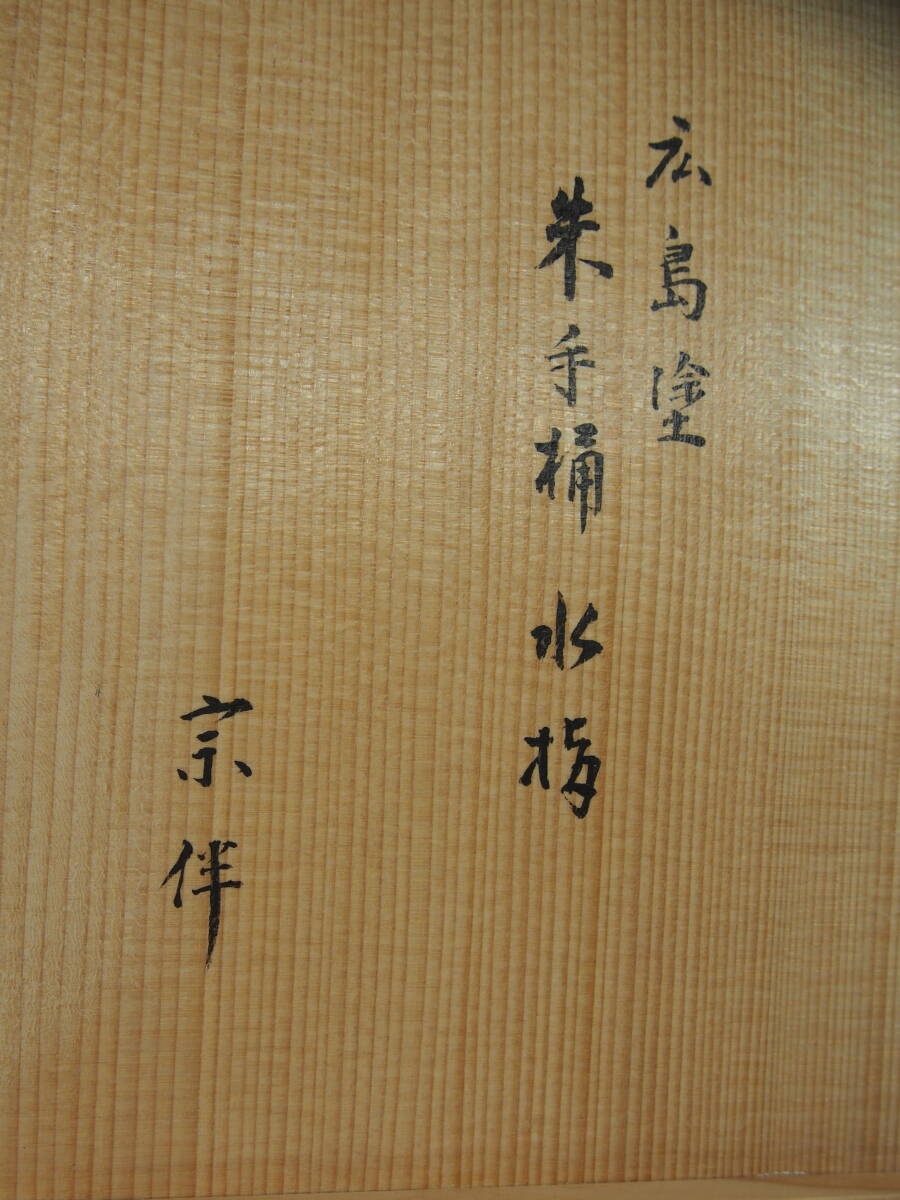 広島塗
朱手桶 水指
宗伴